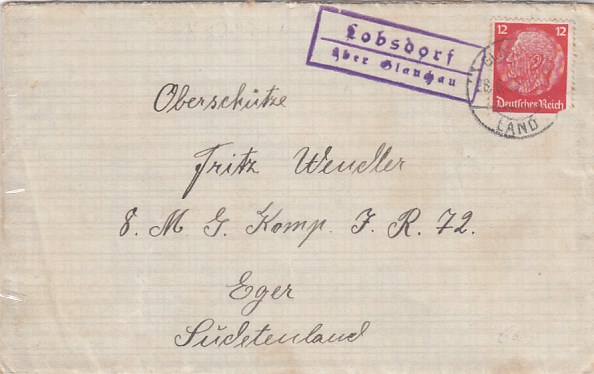 Lobsdorf
über Glauchau
12 12
Deutsches Reich
LAND
Oberschütze
Fritz Wendler
8. M. G. Komp. I. R. 72.
Eger
Sudetenland